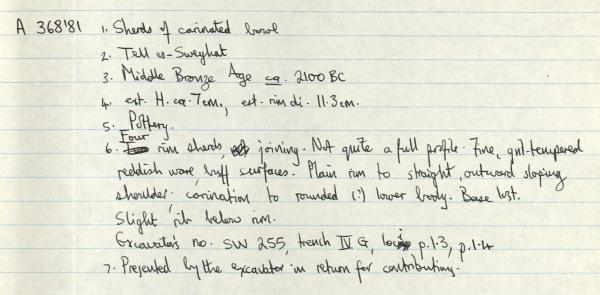 A 368'81 1. Sherds of carinated bowl
2. Tell es-Sweyhat
3. Middle Bronze Age ca. 2100 BC
4. est. H. ca. 7cm., est. rim di. 11.3cm.
5. Pottery.
6. Four rim sherds, joining. Not quite a full profile. Fine, grit-tempered
reddish ware buff surfaces. Plain rim to straight, outward sloping
shoulder; carination to rounded (?) lower body. Base lost.
Slight rib below rim.
Excavator's no. SW 255, trench IV G, loci p.1.3, p.1.4
7. Presented by the excavator in return for contributing.